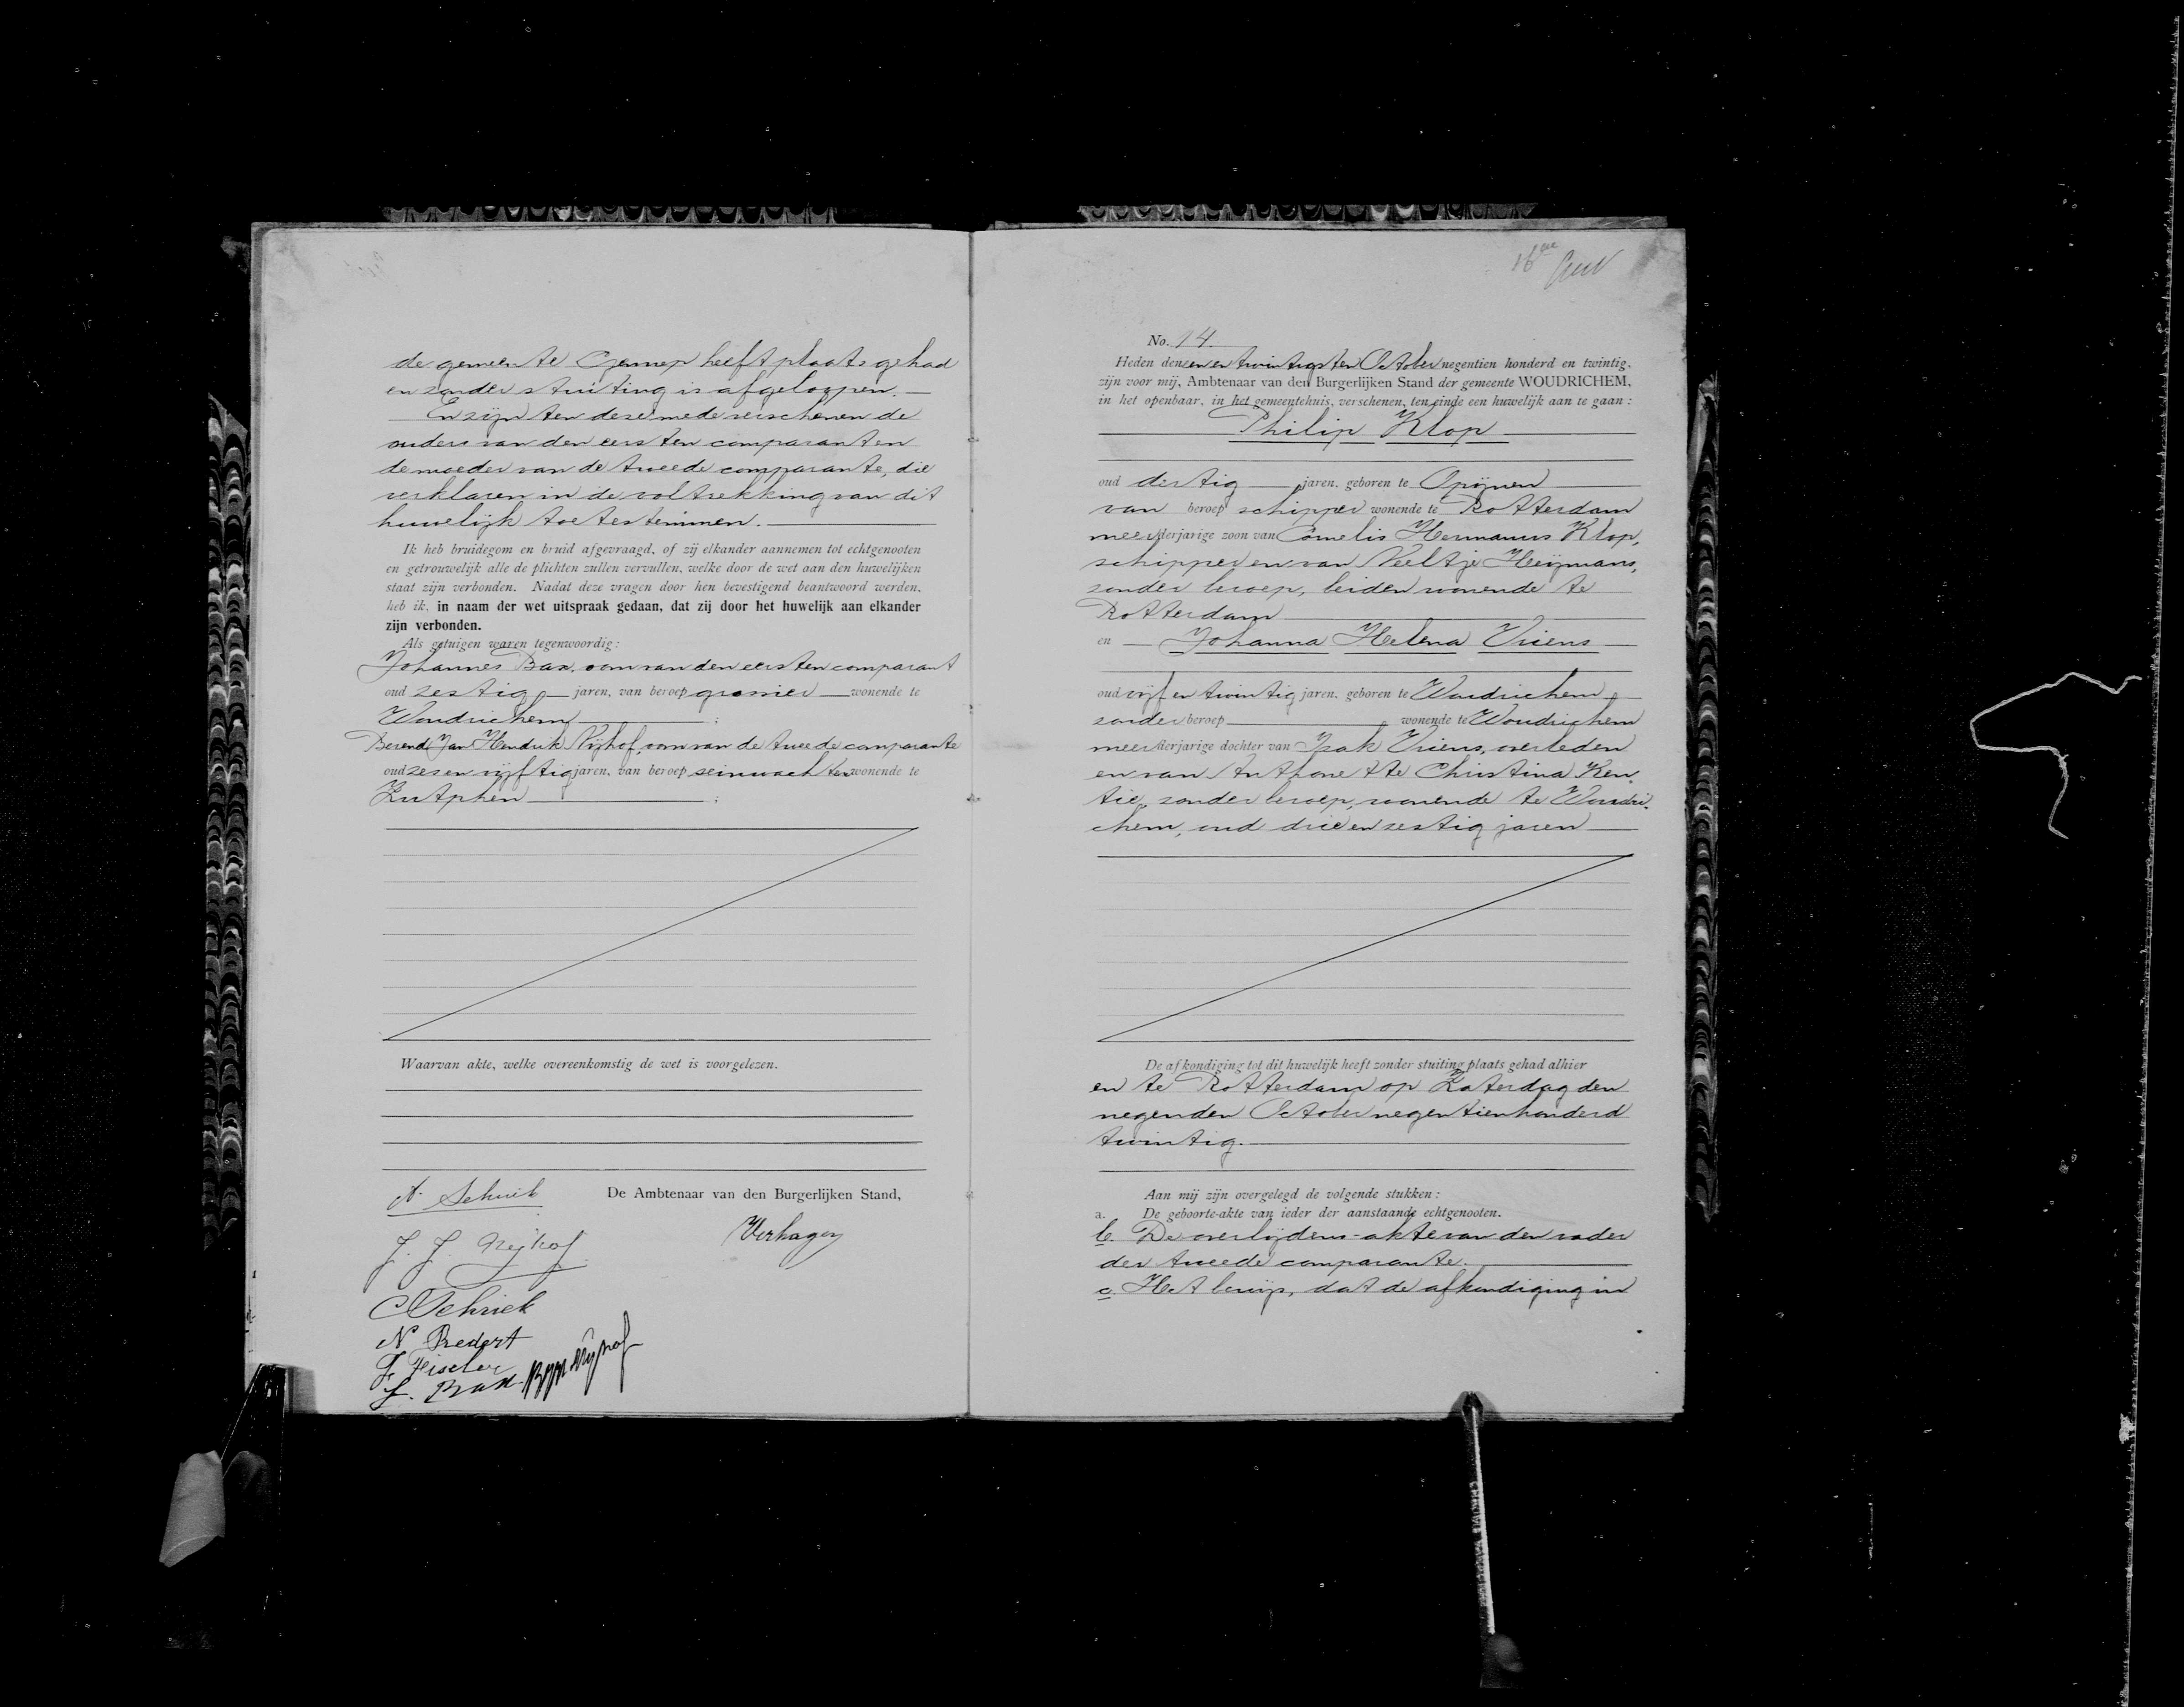 de gemeente Gennep heeft plaats gehad
en zonder stuiting is afgeloopen.
En zijn ten deze mede verschenen de
ouders van den eersten comparant en
de moeder van de tweede comparante, die
verklaren in de voltrekking van dit
huwelijk toe te stemmen.
Ik heb bruidegom en bruid afgevraagd, of zij elkander aannemen tot echtgenooten
en getrouwelijk alle de plichten zullen vervullen, welke door de wet aan den huwelijken
staat zijn verbonden. Nadat deze vragen door hen bevestigend beantwoord werden,
heb ik, in naam der wet uitspraak gedaan, dat zij door het huwelijk aan elkander
zijn verbonden.
Als getuigen waren tegenwoordig:
Johannes Bax, oom van den eersten comparant
oud zestig jaren, van beroep grossier wonende te
Woudrichem ;
Berend Jan Hendrik Nijhof, oom van de tweede comparante
oud zes en vijftig jaren, van beroep seinwachter wonende te
Zutphen ;
Waarvan akte, welke overeenkomstig de wet is voorgelezen.
A. Schriek
De Ambtenaar van den Burgerlijken Stand,
Verhagen
J. J. Nijhof
C Schriek
N Bredert
J. Fischer
J. Bax BJH Nijhof
16de
No. 14.
Heden den een en twintigsten October negentien honderd en twintig,
zijn voor mij, Ambtenaar van den Burgerlijken Stand der gemeente WOUDRICHEM,
in het openbaar, in het gemeentehuis, verschenen, ten einde een huwelijk aan te gaan:
Philip Klop
oud dertig jaren, geboren te Opijnen
van beroep schipper wonende te Rotterdam
meerderjarige zoon van Cornelis Hermanus Klop,
schipper en van Neeltje Heijmans,
zonder beroep, beiden wonende te
Rotterdam
en Johanna Helena Vriens
oud vijf en twintig jaren, geboren te Woudrichem
zonder beroep wonende te Woudrichem
meerderjarige dochter van Izak Vriens, overleden
en van Anthonette Christina Ken
tie, zonder beroep, wonende te Woudri-
chem, oud drie en zestig jaren
De afkondiging tot dit huwelijk heeft zonder stuiting plaats gehad alhier
en te Rotterdam op Zaterdag den
negenden October negentienhonderd
twintig.
Aan mij zijn overgelegd de volgende stukken:
a. De geboorte-akte van ieder der aanstaande echtgenooten.
b. De overlijdens-akte van den vader
der tweede comparante.
c. Het bewijs, dat de afkondiging in